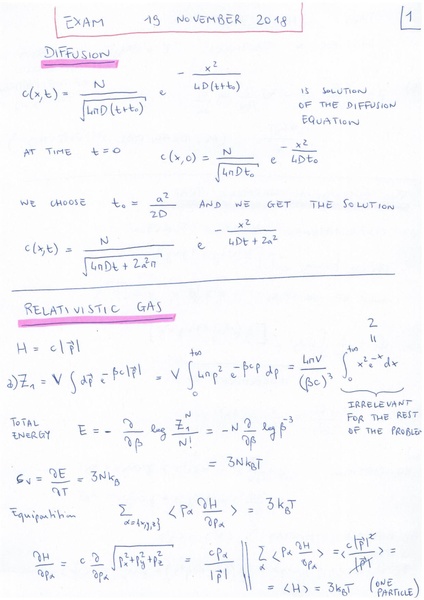 EXAM 19 NOVEMBER 2018 1
DIFFUSION
c(x,t) = N / √(4πD(t+t₀)) e^(-x²/(4D(t+t₀))) IS SOLUTION
OF THE DIFFUSION
EQUATION
AT TIME t=0 c(x,0) = N / √(4πDt₀) e^(-x²/(4Dt₀))
WE CHOOSE t₀ = a²/2D AND WE GET THE SOLUTION
c(x,t) = N / √(4πDt + 2a²π) e^(-x²/(4Dt + 2a²))
RELATIVISTIC GAS
H = c|p⃗|
a) Z₁ = V ∫ dp⃗ e^(-βc|p⃗|) = V ∫₀^(+∞) 4πp² e^(-βcp) dp = 4πV/(βc)³ ∫₀^(+∞) x²e^(-x) dx
2
=
IRRELEVANT
FOR THE REST
OF THE PROBLEM
TOTAL
ENERGY E = - ∂/∂β log Z₁^N/N! = -N ∂/∂β log β⁻³
= 3Nk_BT
c_V = ∂E/∂T = 3Nk_B
Equipartition Σ_(α={x,y,z}) ⟨p_α ∂H/∂p_α⟩ = 3k_BT
∂H/∂p_α = c ∂/∂p_α √(p_x²+p_y²+p_z²) = cp_α/|p⃗| || Σ_α ⟨p_α ∂H/∂p_α⟩ = ⟨c|p⃗|²/|p⃗|⟩ =
= ⟨H⟩ = 3k_BT (ONE
PARTICLE)